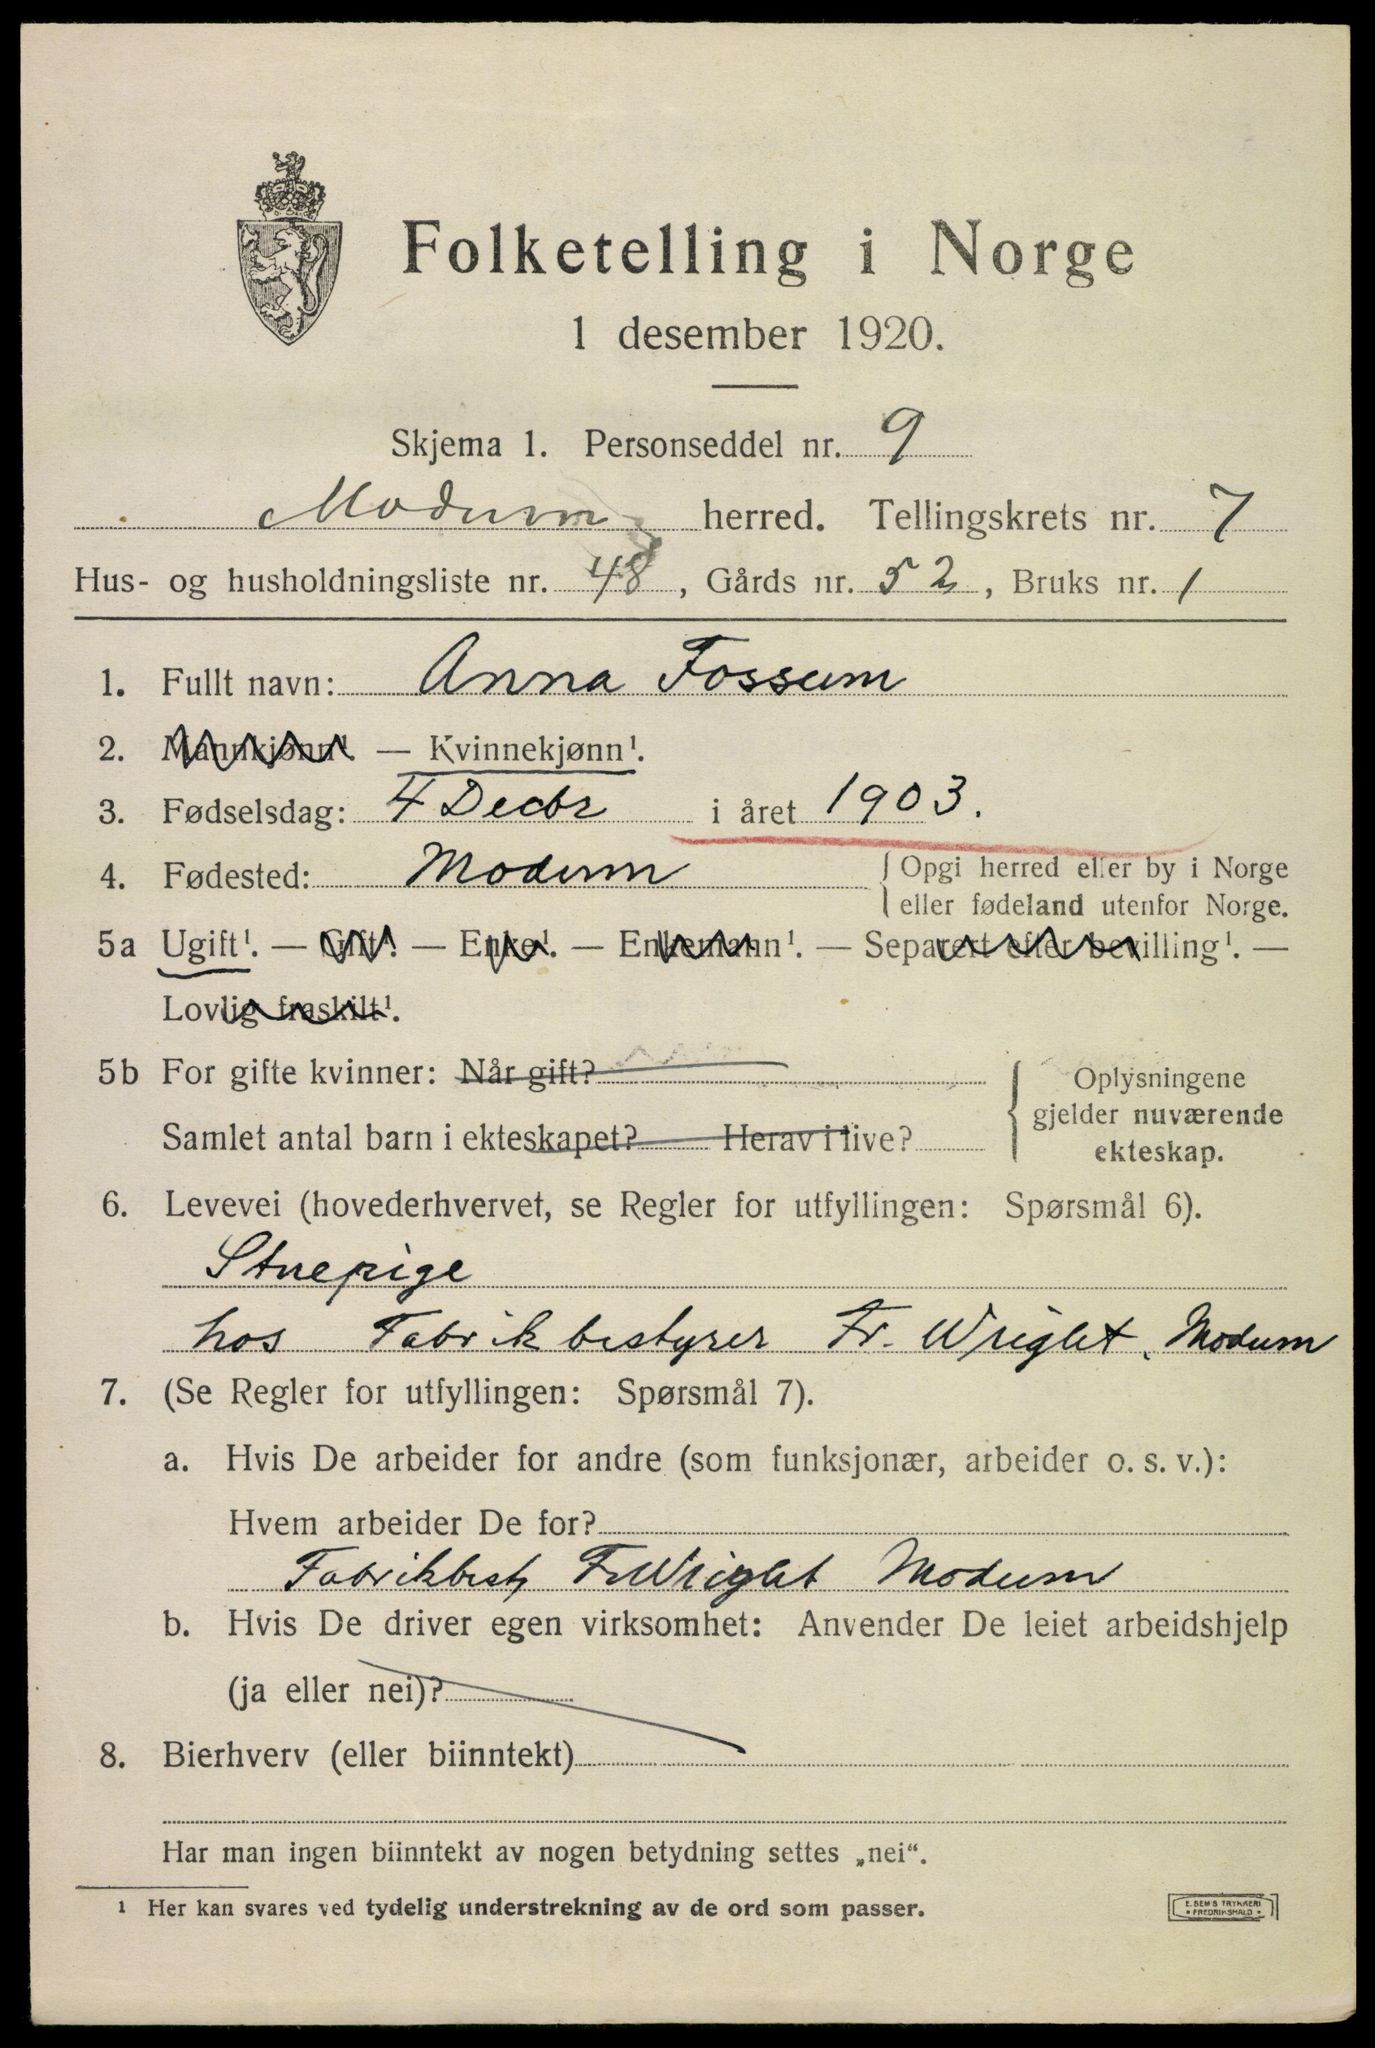 Folketelling i Norge
1 desember 1920.
Skjema 1. Personseddel nr. 9
Modum herred. Tellingskrets nr. 7
Hus- og husholdningsliste nr. 48, Gårds nr. 52, Bruks nr. 1
1. Fullt navn: Anna Fossum
2. Mannkjønn¹. — Kvinnekjønn¹.
3. Fødselsdag: 4 Decbr i året 1903.
4. Fødested: Modum { Opgi herred eller by i Norge
eller fødeland utenfor Norge.
5a Ugift¹. — Gift¹. — Enke¹. — Enkemann¹. — Separert efter bevilling¹. —
Lovlig fraskilt¹.
5b For gifte kvinner: Når gift?
Samlet antal barn i ekteskapet? Herav i live?
{ Oplysningene
gjelder nuværende
ekteskap.
6. Levevei (hovederhvervet, se Regler for utfyllingen: Spørsmål 6).
Stuepige
hos Fabrikbestyrer Fr. Wright, Modum
7. (Se Regler for utfyllingen: Spørsmål 7).
a. Hvis De arbeider for andre (som funksjonær, arbeider o. s. v.):
Hvem arbeider De for?
Fabrikbest, Fr Wright Modum
b. Hvis De driver egen virksomhet: Anvender De leiet arbeidshjelp
(ja eller nei)?
8. Bierhverv (eller biinntekt)
Har man ingen biinntekt av nogen betydning settes „nei“.
¹ Her kan svares ved tydelig understrekning av de ord som passer.
E. SEM'S TRYKKERI
• FREDRIKSHALD •